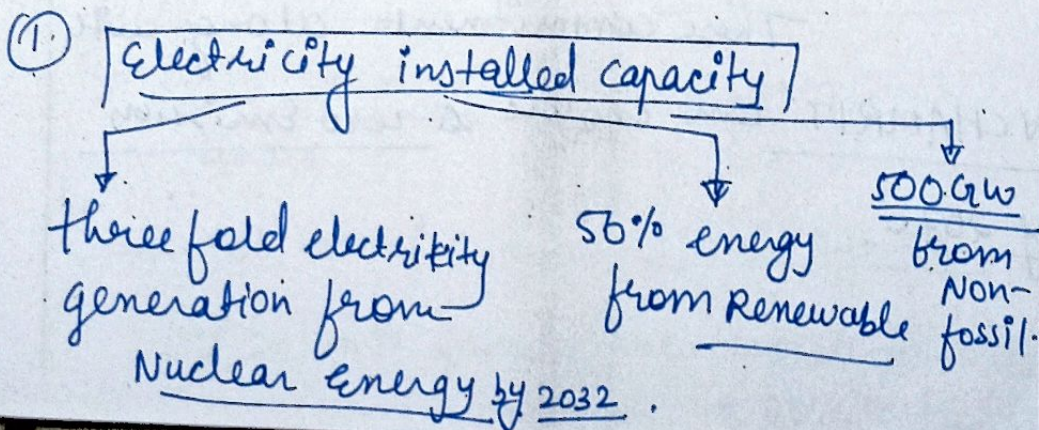 1.
Electricity installed capacity
three fold electrikity
generation from
Nuclear Energy by 2032.
50% energy
from Renewable
500GW
from
Non-
fossil.